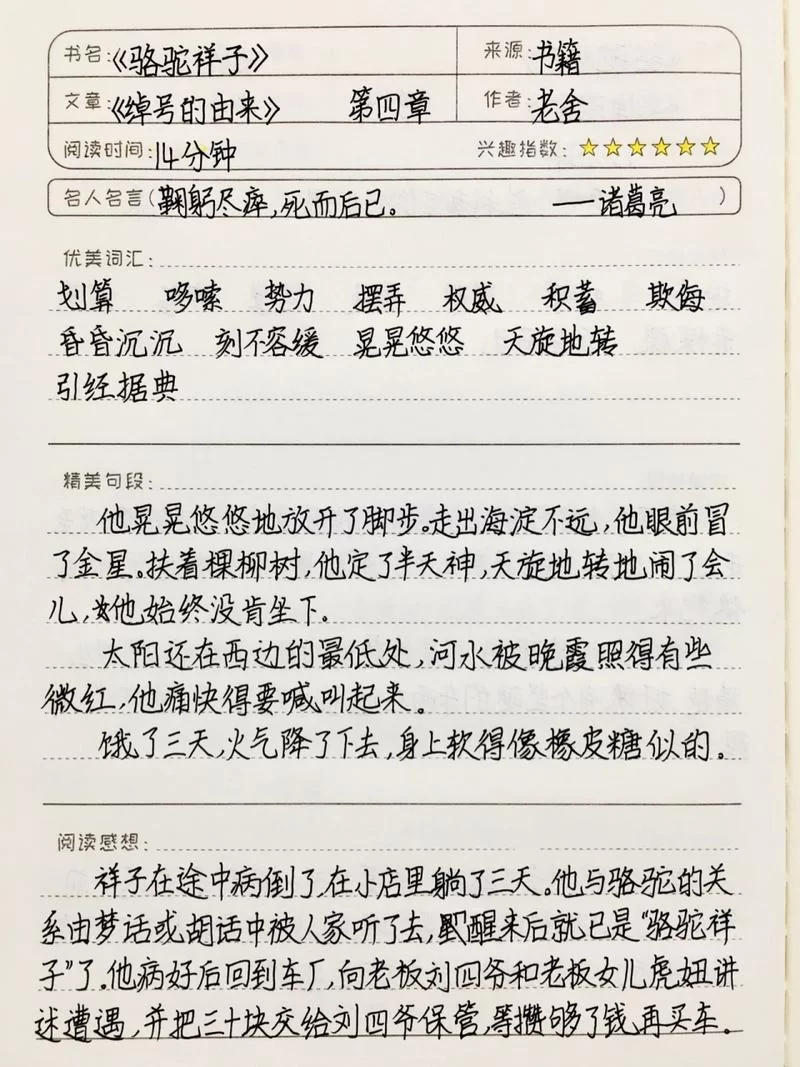 书名:《骆驼祥子》 来源:书籍
文章:《绰号的由来》 第四章 作者:老舍
阅读时间:14分钟 兴趣指数:
名人名言(鞠躬尽瘁,死而后已。 ——诸葛亮)
优美词汇:
划算 哆嗦 势力 摆弄 权威 积蓄 欺侮
昏昏沉沉 刻不容缓 晃晃悠悠 天旋地转
引经据典
精美句段:
他晃晃悠悠地放开了脚步。走出海淀不远,他眼前冒
了金星。扶着棵柳树,他定了半天神,天旋地转地闹了会
儿,他始终没肯坐下。
太阳还在西边的最低处,河水被晚霞照得有些
微红,他痛快得要喊叫起来。
饿了三天,火气降了下去,身上软得像橡皮糖似的。
阅读感想:
祥子在途中病倒了,在小店里躺了三天。他与骆驼的关
系由梦话或胡话中被人家听了去,醒来后就已是“骆驼祥
子”了。他病好后回到车厂,向老板刘四爷和老板女儿虎妞讲
述遭遇,并把三十块交给刘四爷保管,等攒够了钱,再买车。